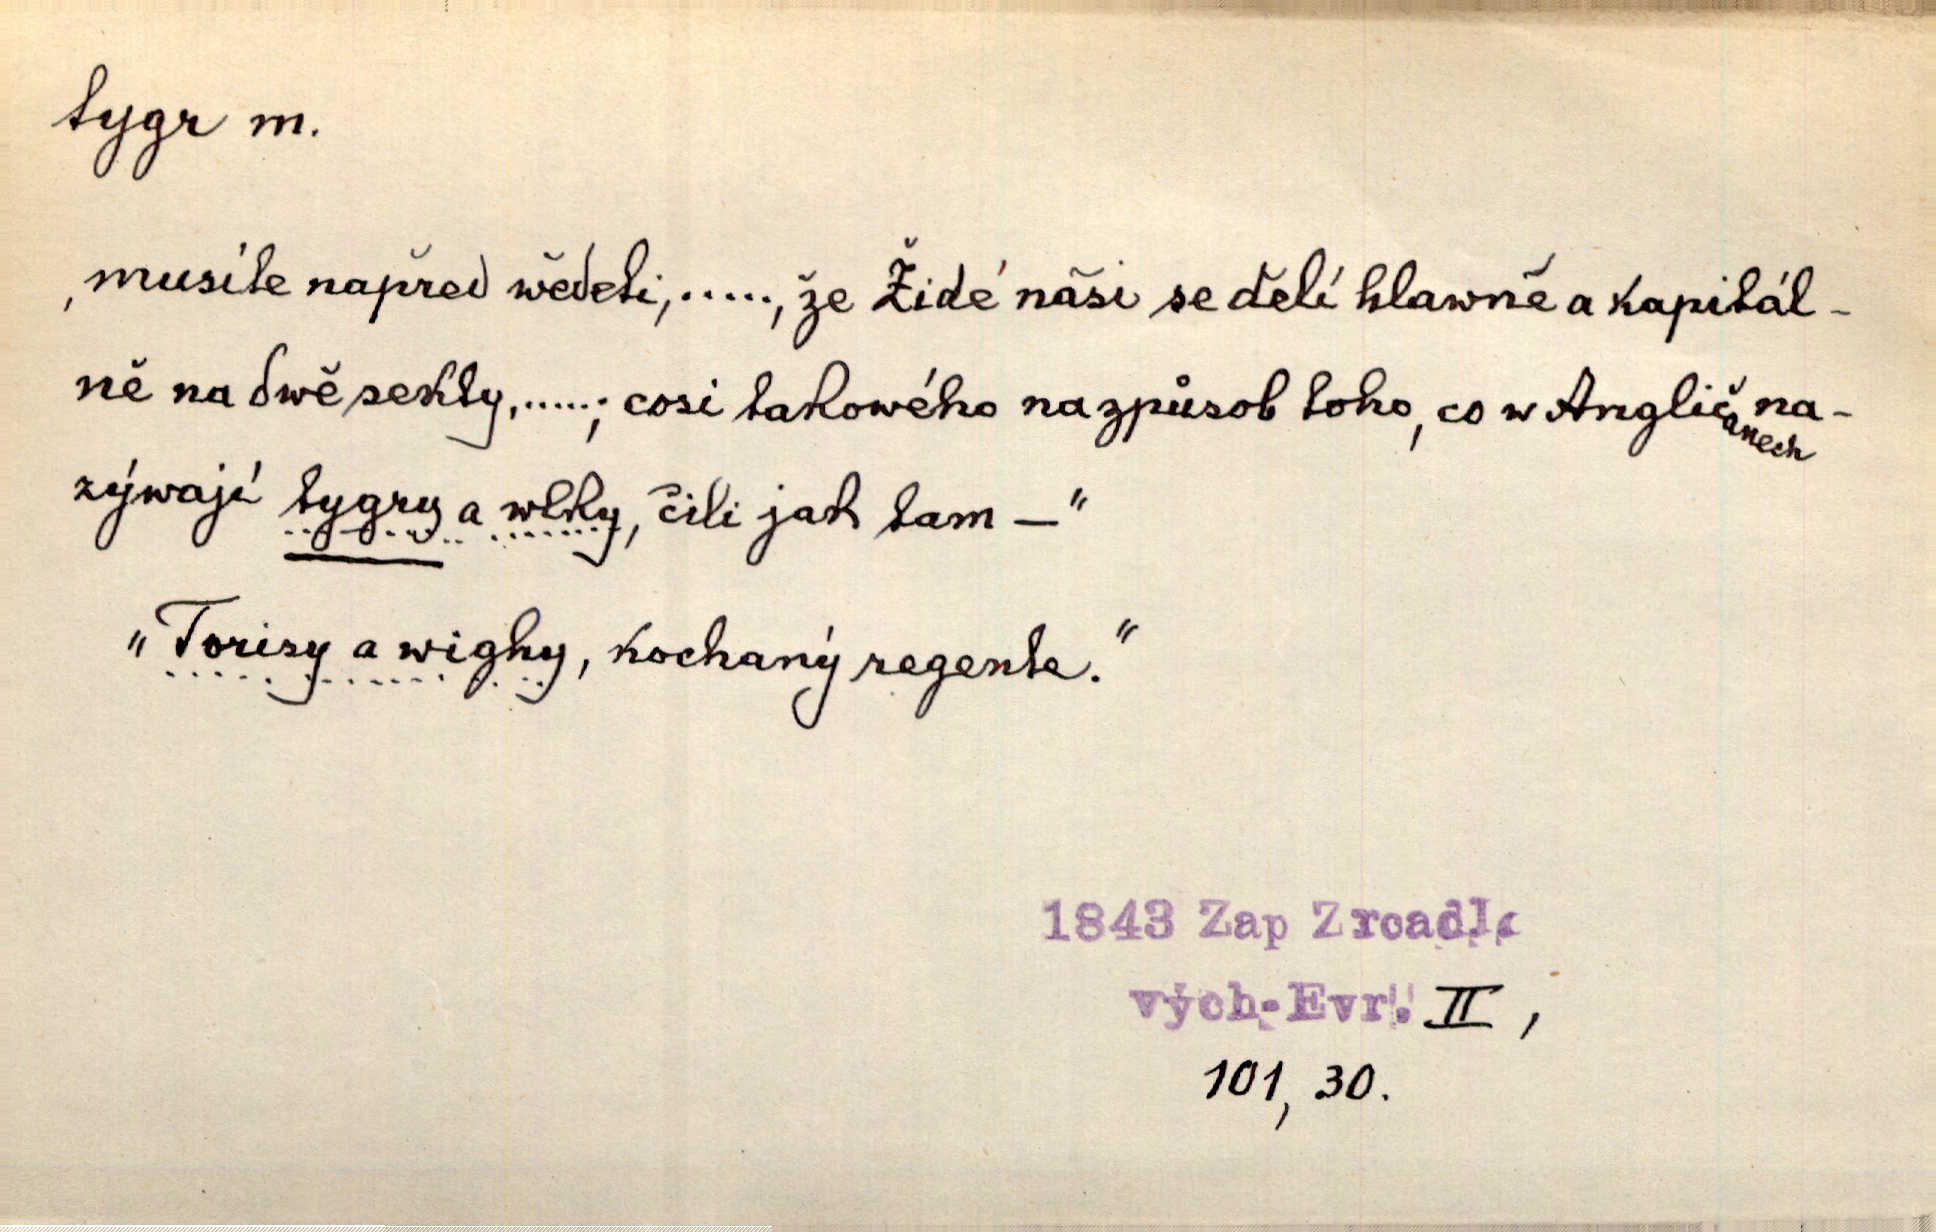 tygr m.
, musíte napřed wěděti, ....., že Židé náši se dělí hlawně a kapitál-
ně na dwě sekty, .....; cosi takowého na způsob toho, co w Angličanech na-
zýwají tygry a wlky, čili jak tam — "
" Torisy a wighy, kochaný regente."
1843 Zap Zrcadlo
vých. Evr. II,
101, 30.